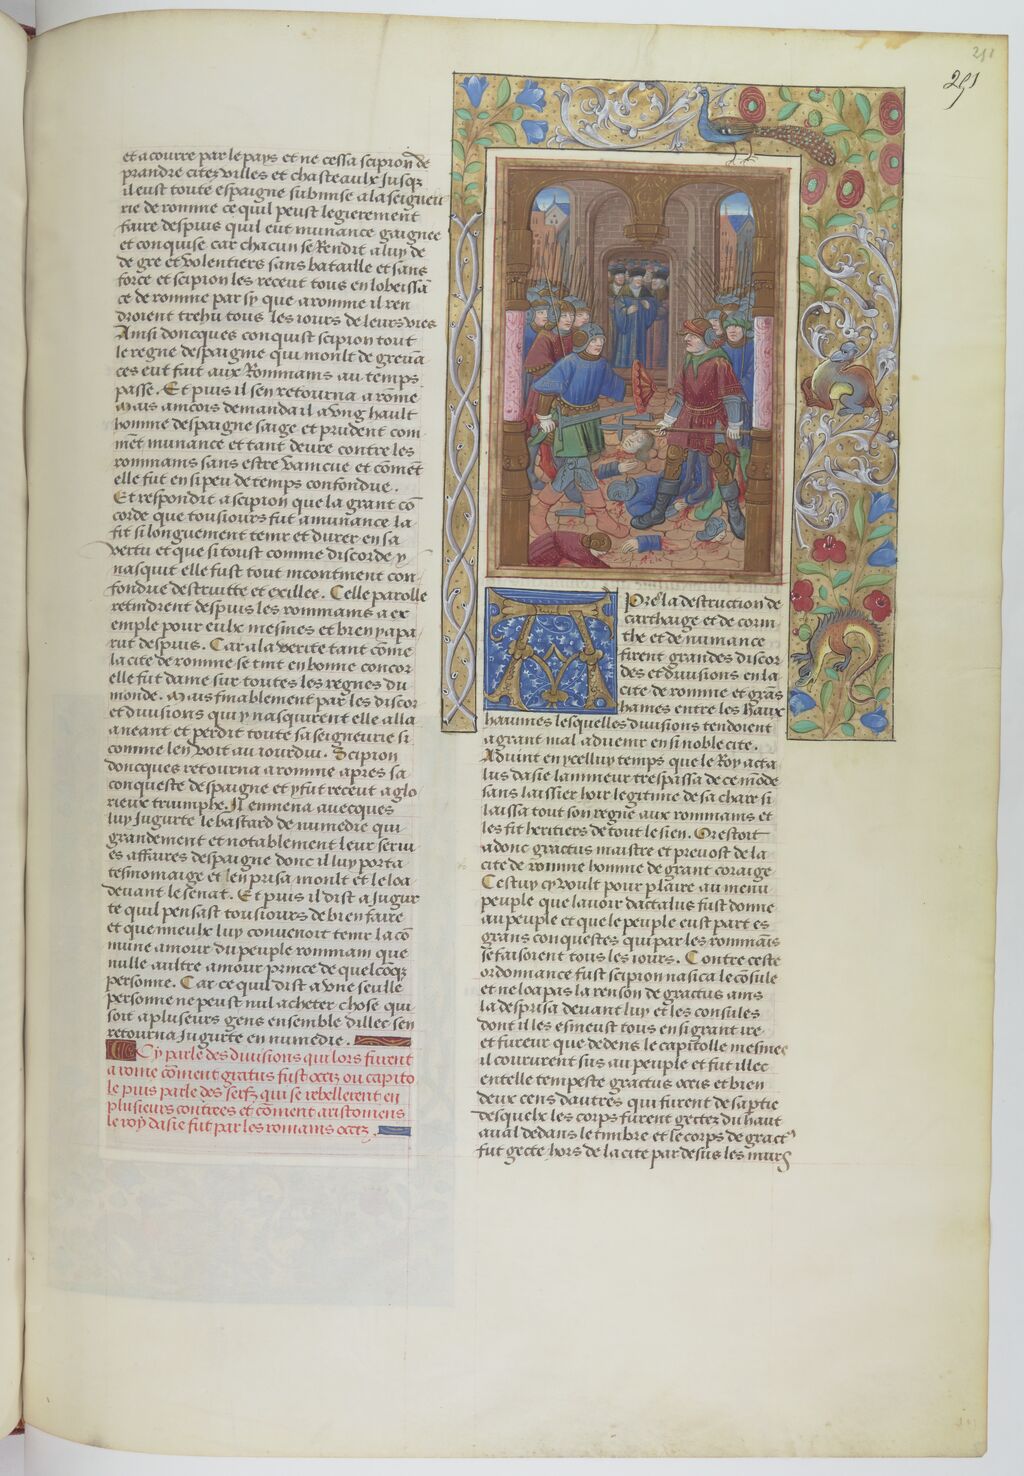 291
251
et acourre par le pays et ne cessa scipion de
prandre citez villes et chasteaulx jusqz
il eust toute espaigne submise a la seigneu
rie de romme ce quil peust legierement
faire despuis quil eut munance gaignee
et conquise car chacun se Rendit a luy de
de gre et volentiers sans bataille et sans
force et scipion les receut tous en lobeissā
ce de romme par sy que a romme il ren
droient trehu tous les iours de leurs vies
Ainsi doncques conquist scipion tout
le regne despaigne qui moult de greuā
ces eut fait aux Rommains au temps
passe. Et puis il sen retourna a rome
Mais aincois demanda il a vng hault
homme despaigne saige et prudent com
mēt munance et tant dure contre les
rommains sans estre vaincue et cōmēt
elle fut en si peu de temps confondue.
Et respondit a scipion que la grant cō
corde que tousiours fut a munance la
fit si longuement tenir et durer en sa
vertu et que si toust comme discorde y
nasquit elle fust tout incontinent con
fondue destruitte et exillee. Celle parolle
retindrent despuis les rommains a ex
emple pour eulx mesmes et bien y apa
rut despuis. Car a la verite tant cōme
la cite de romme se tint en bonne concor
elle fut dame sur toutes les regnes du
monde. Mais finablement par les discor
et diuisions qui y nasquirent elle alla
aneant et perdit toute sa seigneurie si
comme len voit au iourdui. Scipion
doncques retourna a romme apres sa
conqueste despaigne et y fut receut a glo
rieux triumphe. Il emmena auecques
luy Jugurte le bastard de numedie qui
grandement et notablement leur seruí
es affaires despaigne donc il luy porta
tesmoinaige et len prisa moult et le loa
deuant le senat. Et puis il dist a Jugur
te quil pensast tousiours de bien faire
et que mieulx luy conuenoit tenir la cō
mune amour du peuple rommain que
nulle aultre amour prince de quelcōqz
personne. Car ce quil dist a vne seulle
personne ne peust nul acheter chose qui
soit a pluseurs gens ensemble dillec sen
retourna Jugurte en numedie.
Cy parle des diuisions qui lors furent
a rome cōment gratus fust occiz ou capito
le puis parle des serfz qui se rebellerent en
plusieurs contrees et cōment aristomens
le roy dasie fut par les romains occiz.
Apres la destruction de
carthaige et de corin
the et de numance
firent grandes discor
des et diuisions en la
cite de romme et grās
haines entre les haulx
haumes lesquelles diuisions tendoient
a grant mal aduenir en si noble cite.
Aduint en ycelluy temps que le Roy acta
lus dasie la mineur trespassa de ce mōde
sans laissier hoir legitime de sa chare si
laissa tout son regne aux rommains et
les fit heritiers de tout le sien. Or estoit
adonc gractus maistre et preuost de la
cite de romme homme de grant coraige
Cestuy cy voult pour plaire au menu
peuple que lauoir dactalus fust donne
au peuple et que le peuple eust part es
grans conquestes qui par les rommāis
se faisoient tous les iours. Contre ceste
ordonnance fust scipion nasica le cōsule
et ne loa pas la renson de gractus ains
la desprisa deuant luy et les consules
dont il les esmeust tous en si grant ire
et fureur que dedens le capitolle mesmes
il coururent sus au peuple et fut illec
en telle tempeste gractus occis et bien
deux cens dautres qui furent de sa ptie
desquelx les corps furent gectez du haut
aual dedans le timbre et le corps de gract9
fut gecte hors de la cite par desus les murs